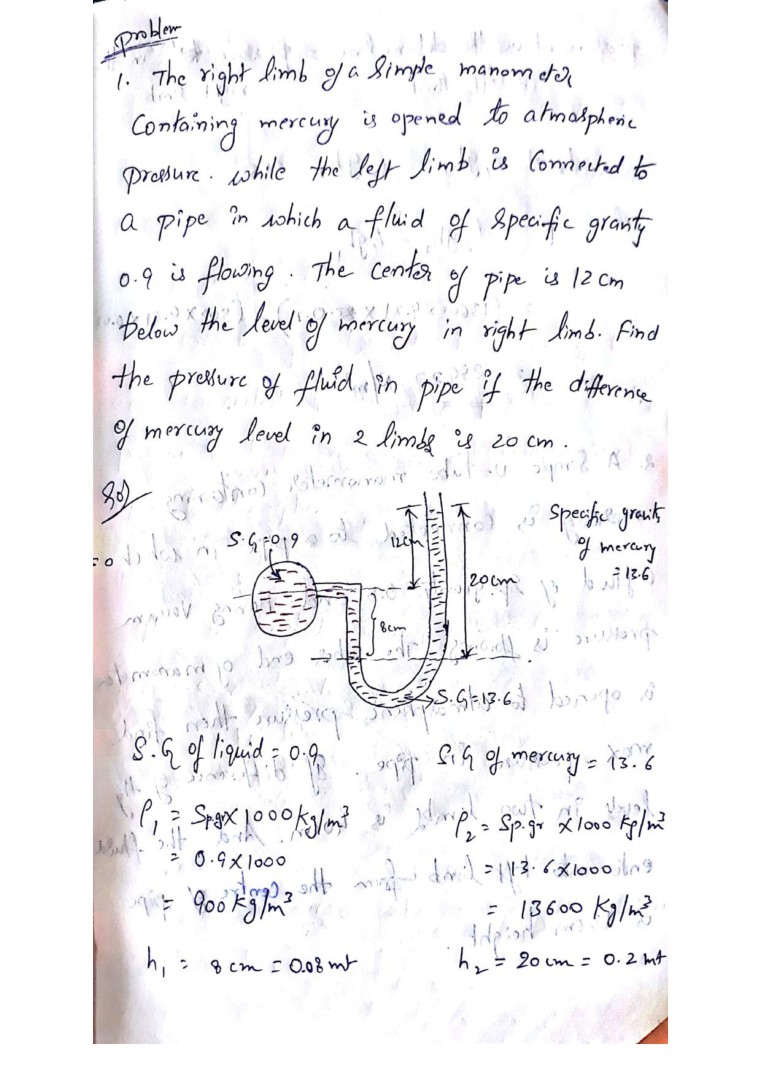 problem
1. The right limb of a Simple manometer
Containing mercury is opened to atmospheric
pressure. while the left limb, is Connected to
a pipe in which a fluid of specific gravity
0.9 is flowing. The center of pipe is 12 cm
below the level of mercury in right limb. Find
the pressure of fluid in pipe if the difference
of mercury level in 2 limbs is 20 cm.
Sol
Specific gravity
of mercury
= 13.6
S.G=0.9
12cm
20cm
8cm
S.G=13.6
S.G of liquid = 0.9 S.G of mercury = 13.6
ρ₁ = Sp.gr X 1000 Kg/m³ ρ₂ = Sp.gr X 1000 Kg/m³
= 0.9 X 1000 = 13.6 X 1000
= 900 Kg/m³ = 13600 Kg/m³
h₁ = 8 cm = 0.08 mt h₂ = 20 cm = 0.2 mt